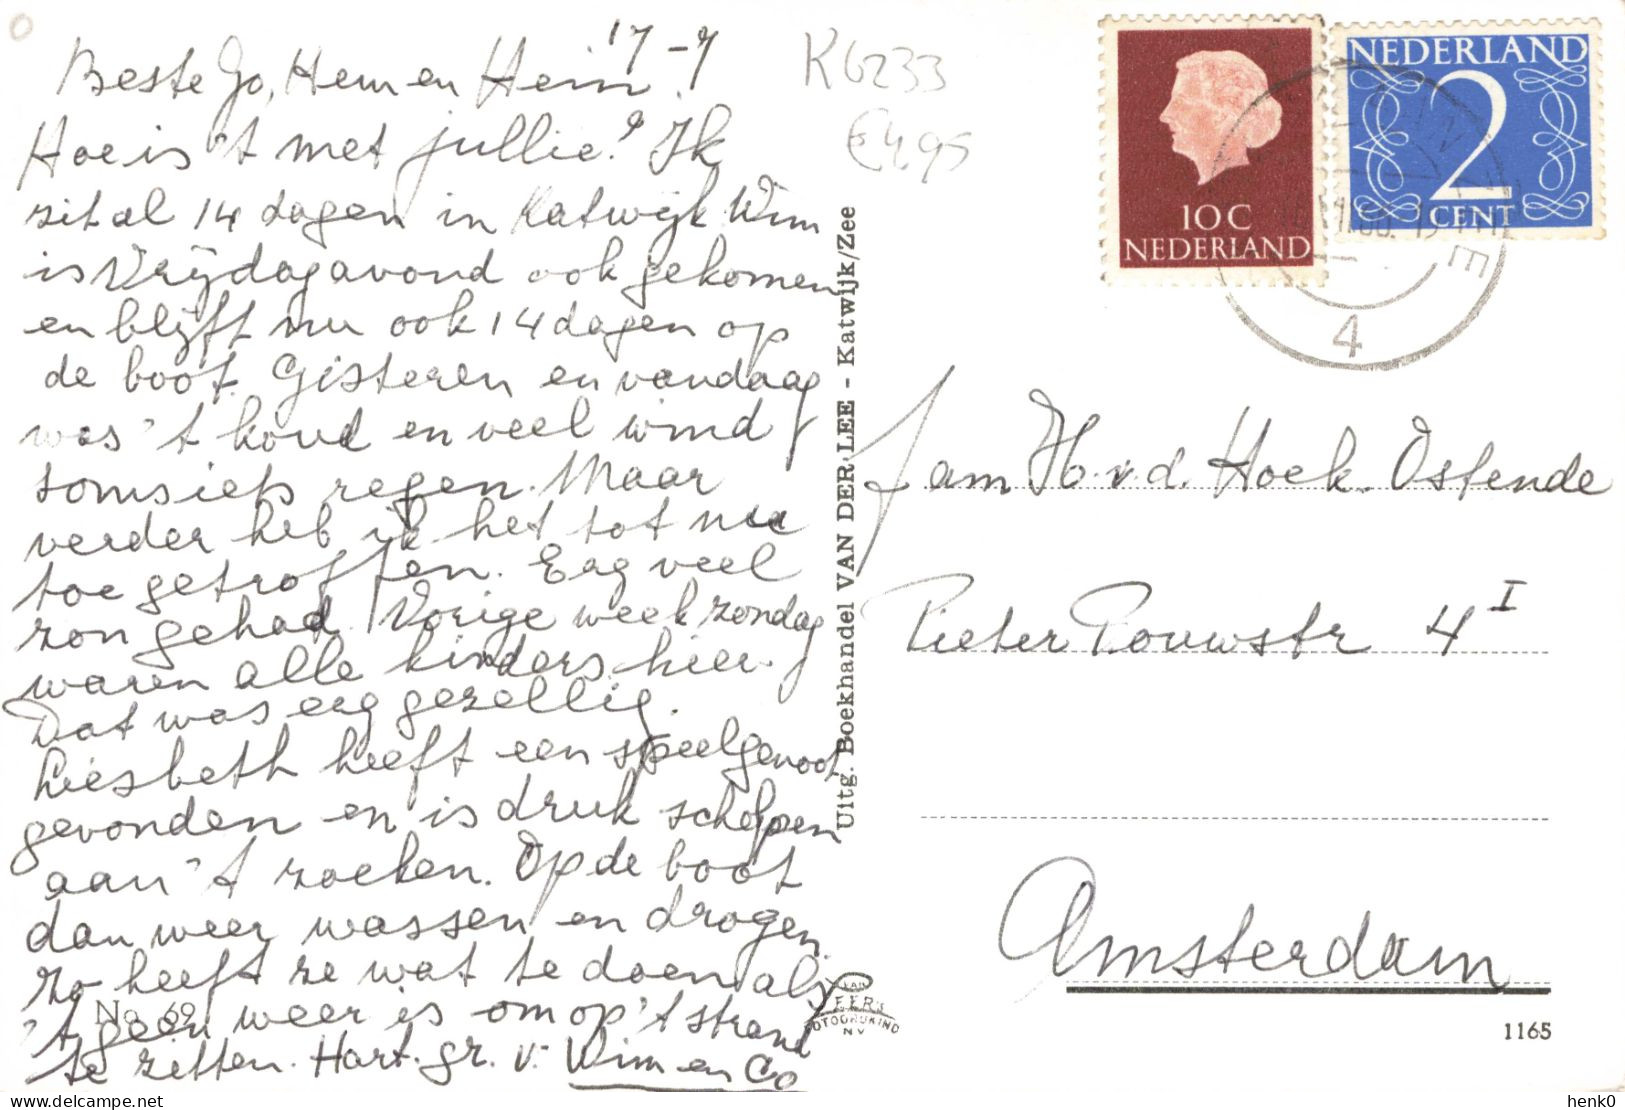 17-7
Beste Jo, Hem en Hein.
Hoe is 't met jullie? Ik
zit al 14 dagen in Katwijk Wim
is Vrijdagavond ook gekomen
en blijft nu ook 14 dagen op
de boot. Gisteren en vandaag
was 't koud en veel wind
soms iets regen. Maar
verder heb ik het tot nu
toe getroffen. Erg veel
zon gehad. Vorige week zondag
waren alle kinders hier.
Dat was erg gezellig.
Liesbeth heeft een speelgenoot
gevonden en is druk schelpen
aan 't zoeken. Op de boot
dan weer wassen en drogen.
Zo heeft ze wat te doen als
't geen weer is om op 't strand
te zitten. Hart. gr. v. Wim en Co
No. 69
K6233
€4,95
Uitg. Boekhandel VAN DER LEE - Katwijk/Zee
NEDERLAND
2
CENT
10 C
NEDERLAND
E
4
Fam H. v.d. Hoek. Ostende
Pieter Pouwstr 4 I
Amsterdam
1165
henk0